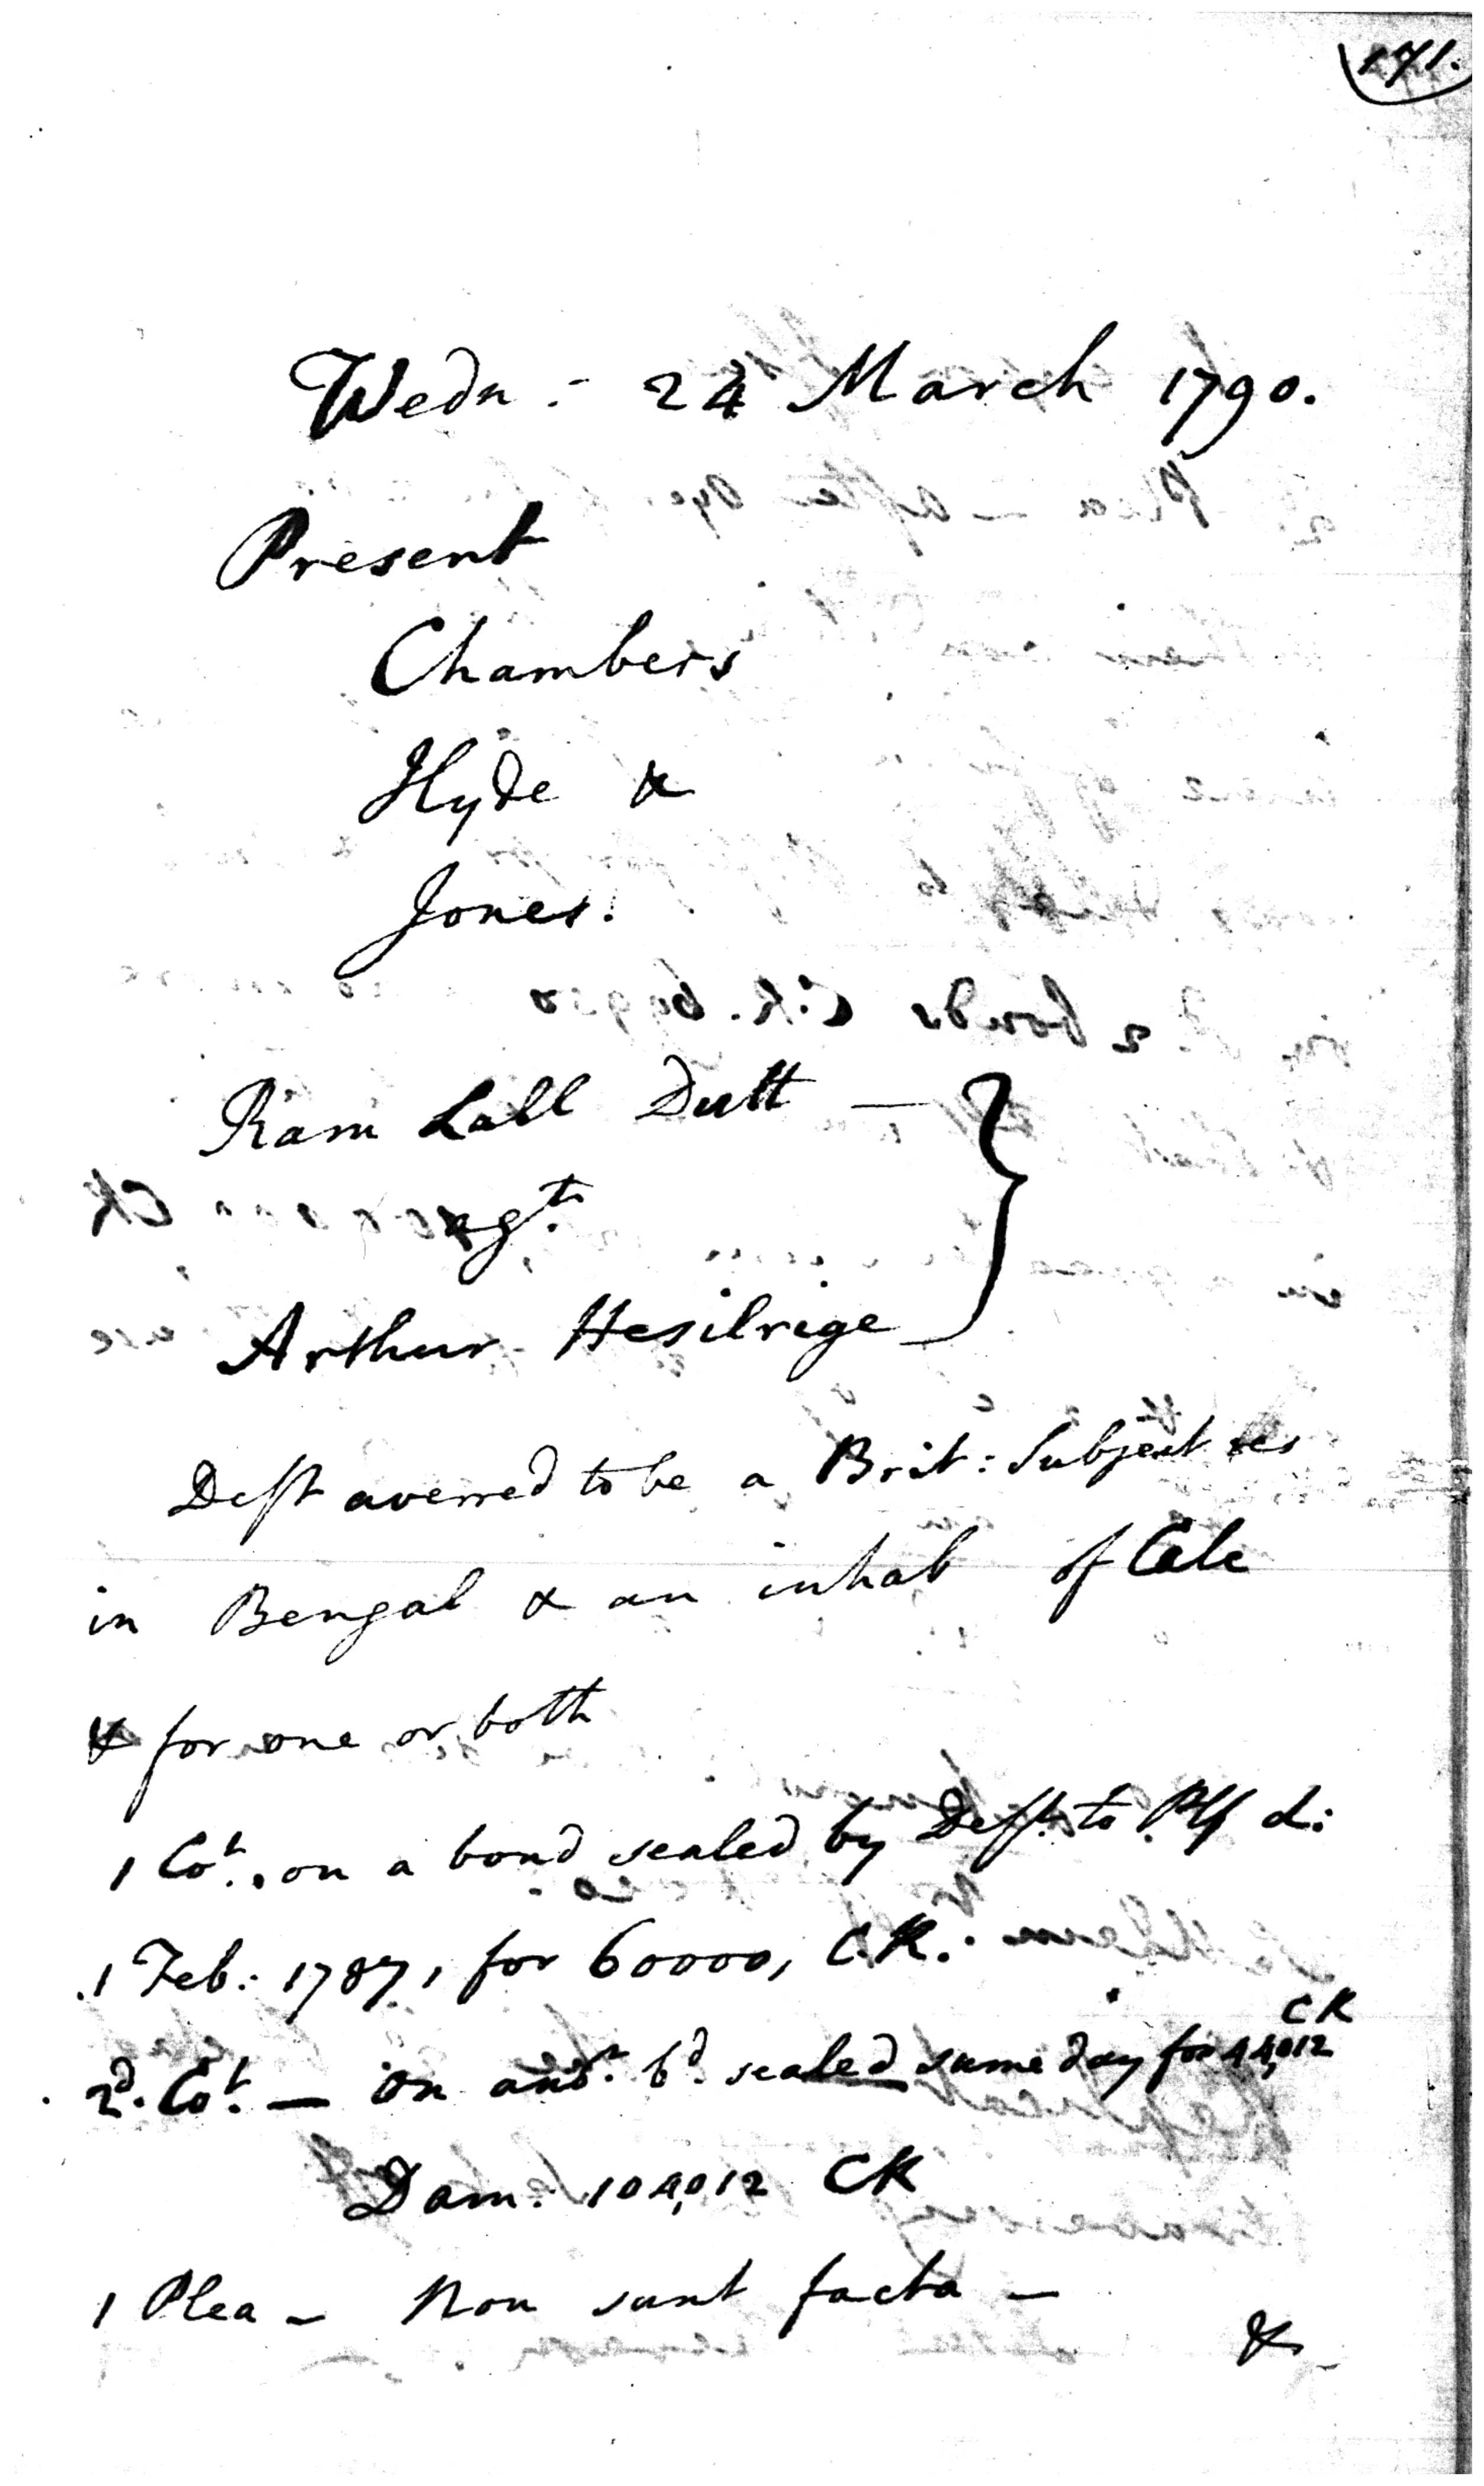 171.
Wedn: 24 March 1790.
Present
Chambers
Hyde &
Jones.
Ram Lall Dutt —
agt.
Arthur Hesilrige
Deft averred to be a Brit: Subject res
in Bengal & an inhab of Calc
& for one or both
1 Cot. on a bond sealed by Deft to Plf d:
1 Feb: 1787, for 60000, C.R.
CR
2d. Cot. — on anor. bd. sealed same day for 44,012
Dam: 104,012 CR
1 Plea — Non sunt facta —
&